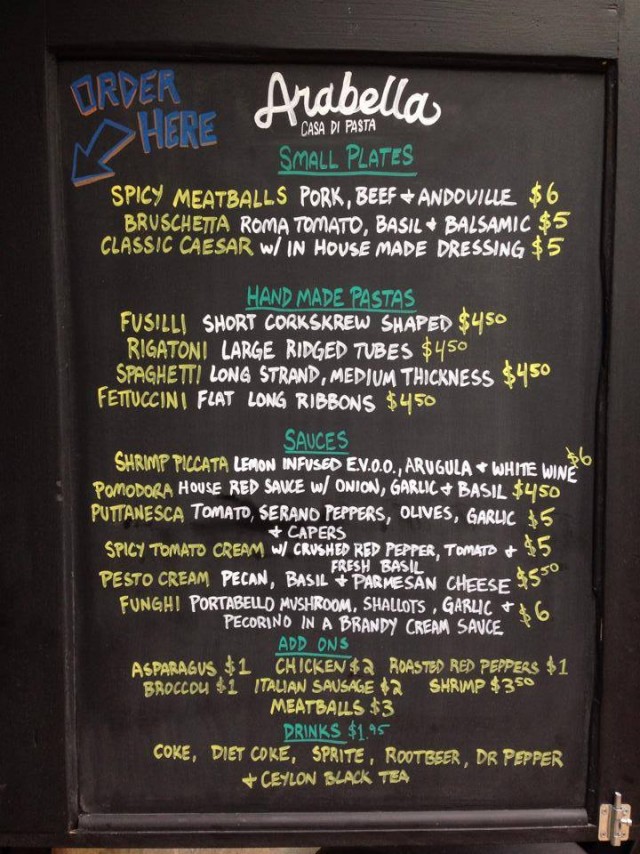 ORDER HERE
Arabella
CASA DI PASTA
SMALL PLATES
SPICY MEATBALLS PORK, BEEF + ANDOUILLE $6
BRUSCHETTA ROMA TOMATO, BASIL + BALSAMIC $5
CLASSIC CAESAR W/ IN HOUSE MADE DRESSING $5
HAND MADE PASTAS
FUSILLI SHORT CORKSKREW SHAPED $4.50
RIGATONI LARGE RIDGED TUBES $4.50
SPAGHETTI LONG STRAND, MEDIUM THICKNESS $4.50
FETTUCCINI FLAT LONG RIBBONS $4.50
SAUCES
SHRIMP PICCATA LEMON INFUSED E.V.O.O., ARUGULA + WHITE WINE $6
POMODORA HOUSE RED SAUCE W/ ONION, GARLIC + BASIL $4.50
PUTTANESCA TOMATO, SERANO PEPPERS, OLIVES, GARLIC $5
+ CAPERS
SPICY TOMATO CREAM W/ CRUSHED RED PEPPER, TOMATO + $5
FRESH BASIL
PESTO CREAM PECAN, BASIL + PARMESAN CHEESE $5.50
FUNGHI PORTABELLO MUSHROOM, SHALLOTS, GARLIC + $6
PECORINO IN A BRANDY CREAM SAUCE
ADD ONS
ASPARAGUS $1 CHICKEN $2 ROASTED RED PEPPERS $1
BROCCOLI $1 ITALIAN SAUSAGE $2 SHRIMP $3.50
MEATBALLS $3
DRINKS $1.95
COKE, DIET COKE, SPRITE, ROOTBEER, DR PEPPER
+ CEYLON BLACK TEA